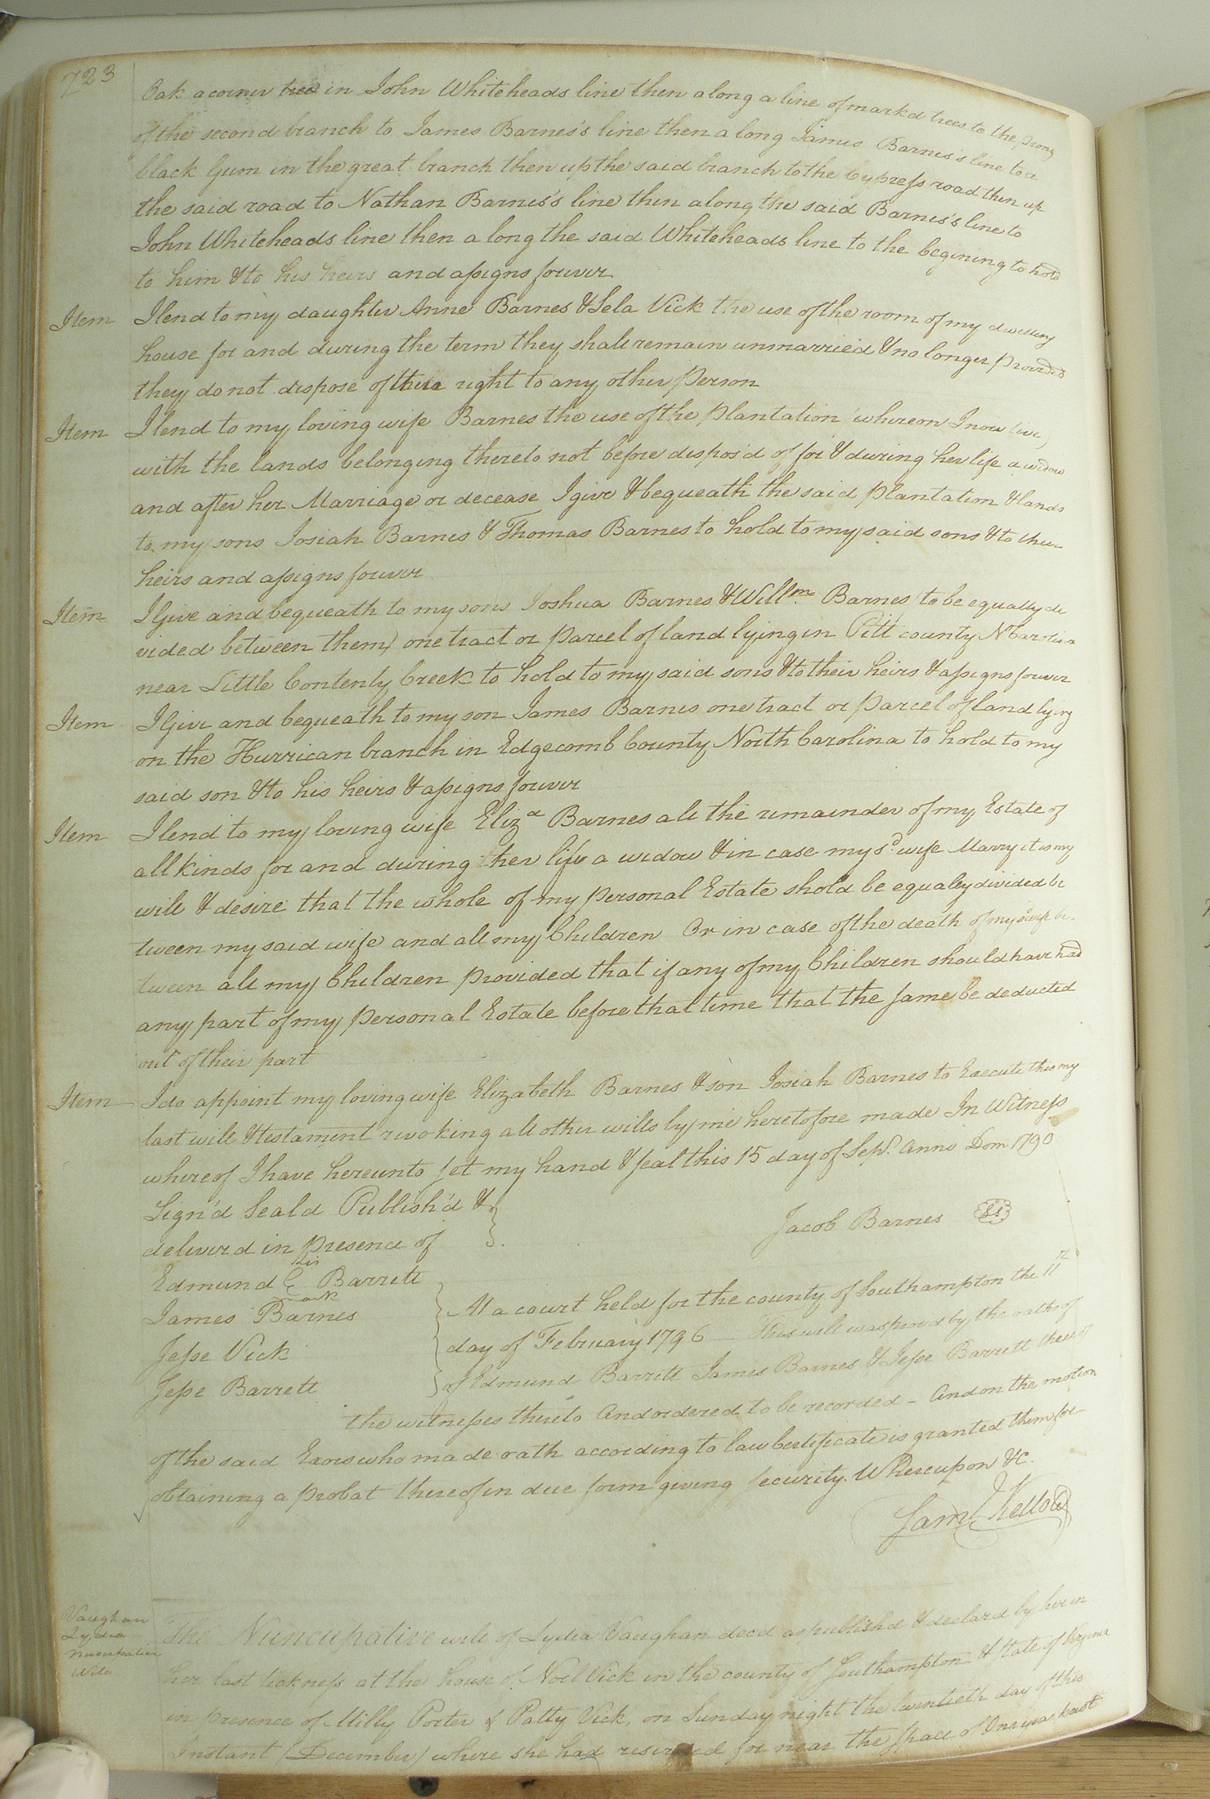 723
Oak a corner tree in John Whiteheads line then along a line of markd trees to the prong
of the second branch to James Barnes's line then along James Barnes's line to a
black Gum in the great branch then up the said branch to the Cypress road then up
the said road to Nathan Barnes's line then along the said Barnes's line to
John Whiteheads line then along the said Whiteheads line to the begining to hold
to him & to his heirs and assigns forever
Item I lend to my daughter Anne Barnes & Sela Vick the use of the room of my dwelling
house for and during the term they shall remain unmarried & no longer provided
they do not dispose of their right to any other Person
Item I lend to my loving wife Barnes the use of the plantation whereon I now live
with the lands belonging thereto not before dispos'd of for & during her life a widow
and after her Marriage or decease I give & bequeath the said plantation & lands
to my sons Josiah Barnes & Thomas Barnes to hold to my said sons & to their
heirs and assigns forever
Item I Give and bequeath to my sons Joshua Barnes & Willm Barnes to be equally di
vided between them, one tract or parcel of land lying in Pitt county No Carolina
near Little Contenty Creek to hold to my said sons & to their heirs & assigns forever
Item I Give and bequeath to my son James Barnes one tract or Parcel of land lying
on the Hurrican branch in Edgecomb County North Carolina to hold to my
said son & to his heirs & assigns forever
Item I lend to my loving wife Eliza Barnes all the remainder of my Estate of
all kinds for and during her life a widow & in case my sd wife Marry it is my
will & desire that the whole of my personal Estate shold be equaley divided be
tween my said wife and all my Children Or in case of the death of my wife be
tween all my Children provided that if any of my Children should have had
any part of my personal Estate before that time that the same be deducted
out of their part
Item I do appoint my loving wife Elizabeth Barnes & son Josiah Barnes to Execute this my
last will & testament revoking all other wills by me heretofore made In Witness
whereof I have hereunto set my hand & seal this 15 day of Sepr. Anno Dom 1790
Sign'd Seald Publish'd &
deliverd in presence of
Jacob Barnes
his
Edmund E Barrett
mark
James Barnes
Jesse Vick
Jesse Barrett
At a court held for the county of Southampton the 11th
day of February 1796 This will was proved by the oaths of
of Edmund Barrett James Barnes & Jesse Barrett three of
the witnesses thereto And ordered to be recorded - And on the motion
of the said Exors who made oath according to law Certificate is granted them for
obtaining a probat thereof in due form giving security. Whereupon &c.
Saml Kello
Vaughan
Lydia
Nuncupative
Will
The Nuncupative will of Lydia Vaughan decd as published & declard by her in
her last sickness at the house of Noel Vick in the county of Southampton & State of Virginia
in presence of Milly Porter & Patty Vick, on Sunday night the twentieth day of this
Instant (December) where she had resided for near the space of One year past